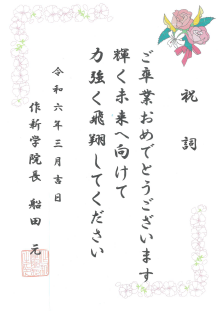 祝詞
ご卒業おめでとうございます
輝く未来へ向けて
力強く飛翔してください
令和六年三月吉日
作新学院長 船田 元